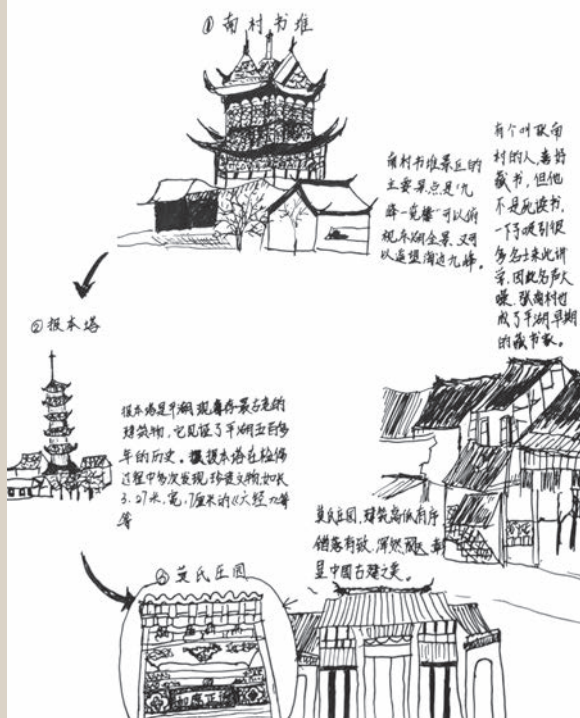 ① 南村书堆
南村书堆景点的
主要景点是“九
峰一览楼”可以俯
视东湖全景，又可
以遥望海边九峰。
有个叫张南
村的人，喜好
藏书，但他
不是死读书，
一下子吸引很
多名士来此讲
学，因此名声大
噪，张南村也
成了平湖早期
的藏书家。
② 报本塔
报本塔是平湖现存最古老的
建筑物，它见证了平湖五百多
年的历史。报本塔在检修
过程中多次发现珍贵文物，如长
3.27米，宽，7厘米的
等
莫氏庄园，建筑高低有序
错落有致，浑然
显中国古建之美。
③ 莫氏庄园